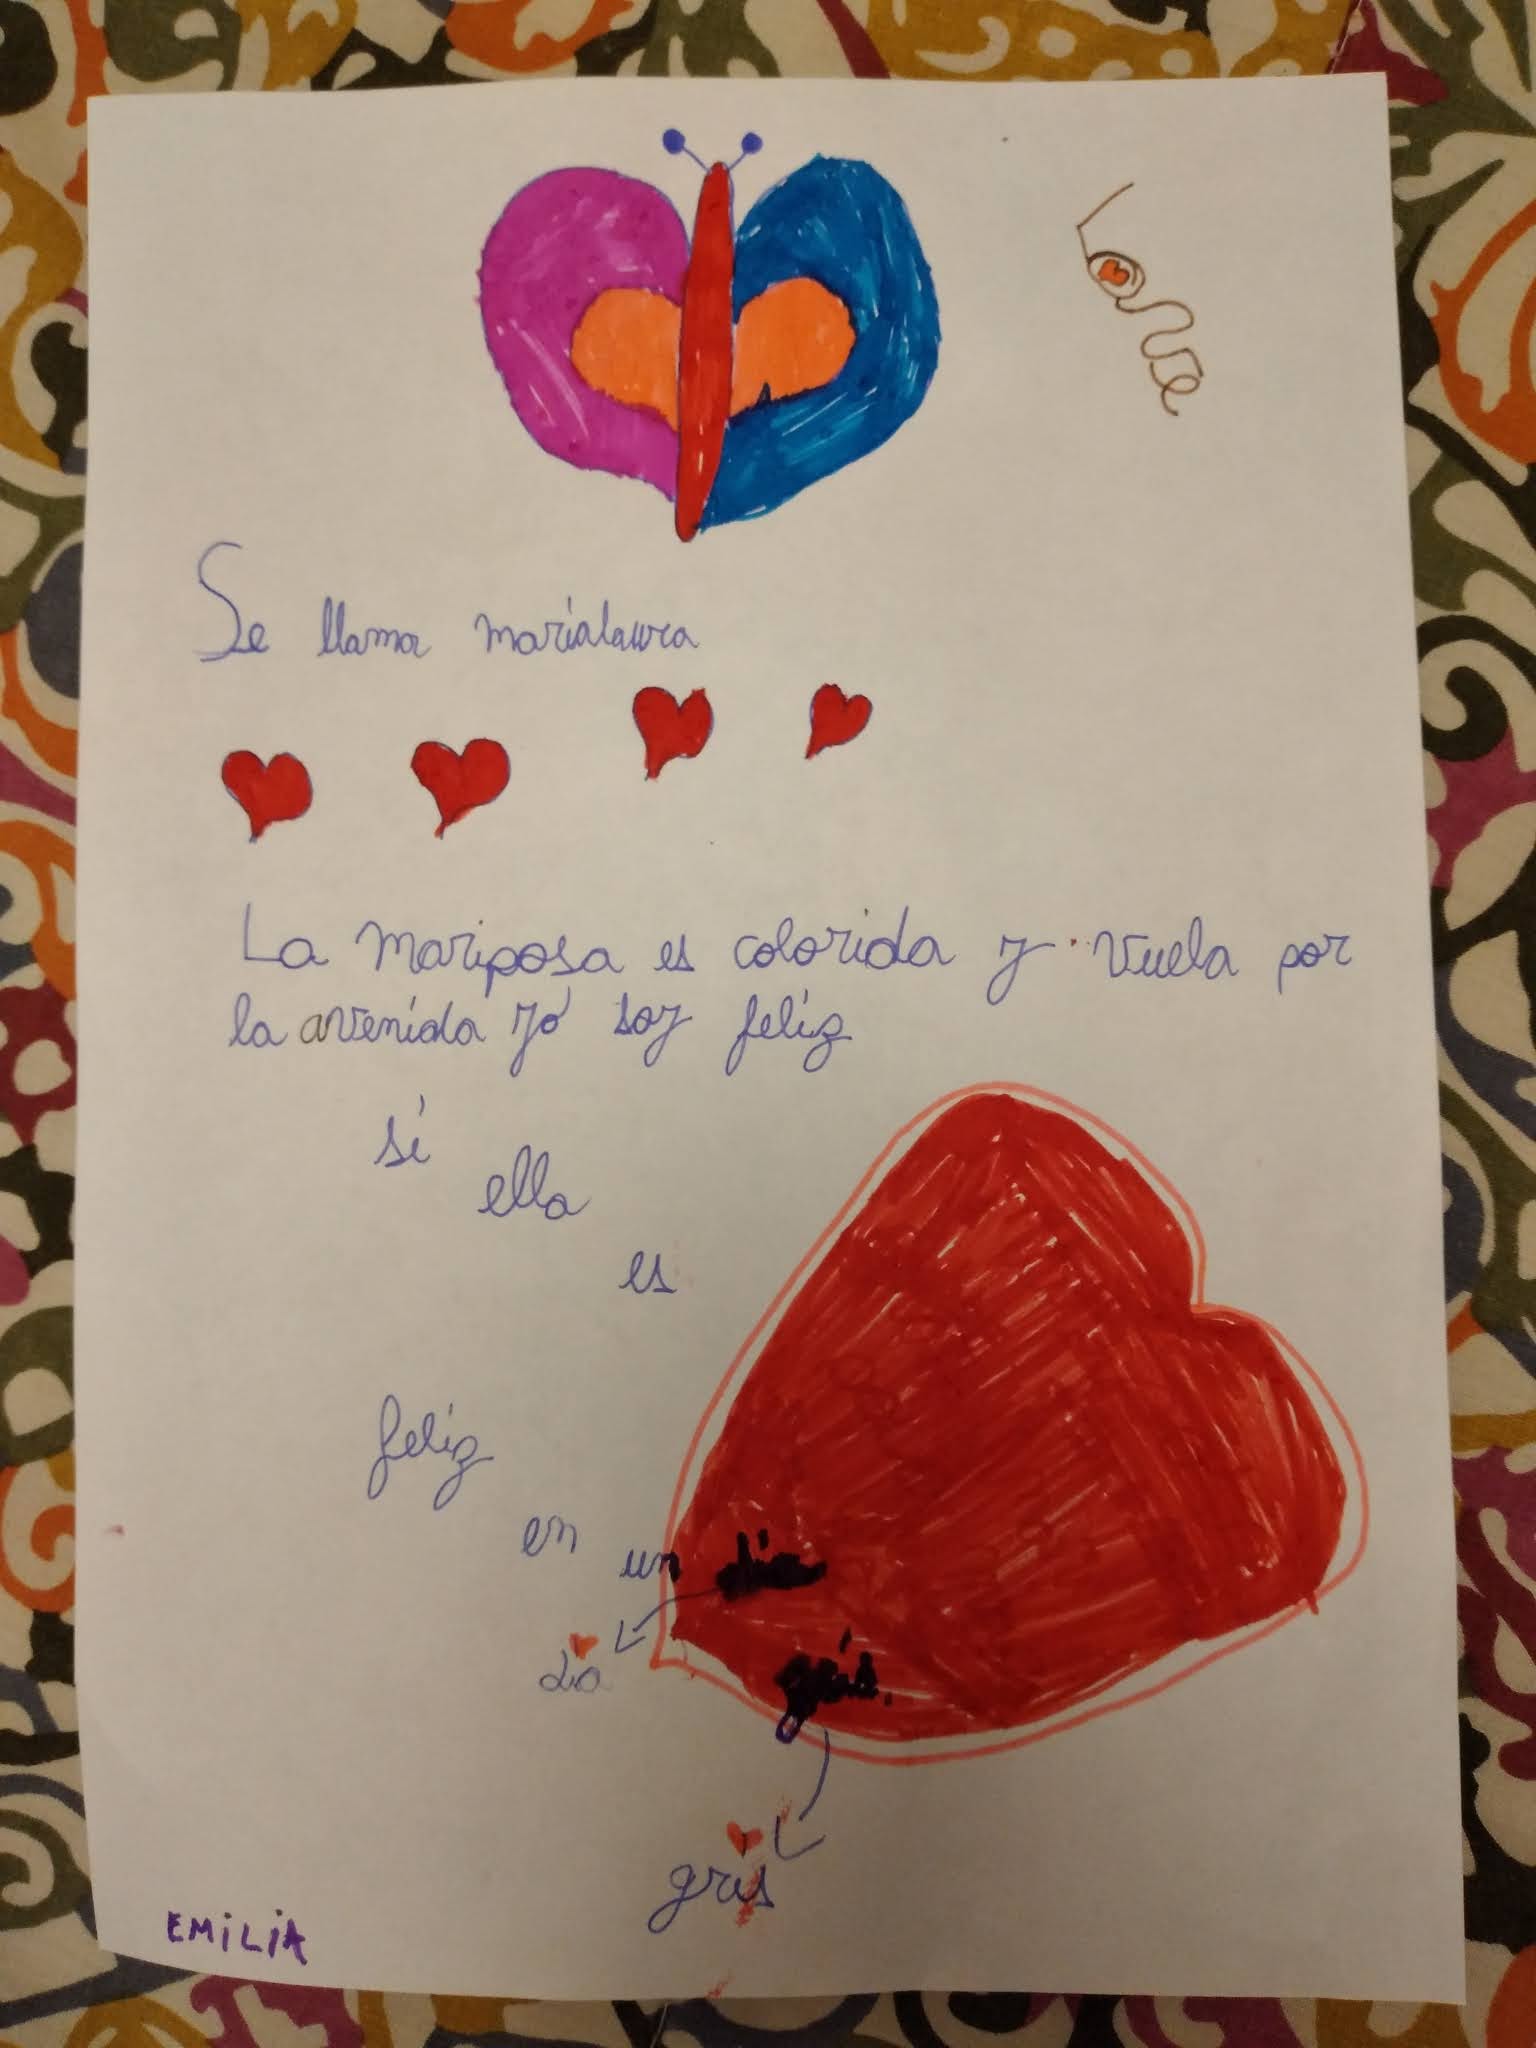 Love
Se llama marialaura
La mariposa es colorida y vuela por
la avenida yo soy feliz
si
ella
es
feliz
en
un dia
dia
gris.
gris
EMiLiA